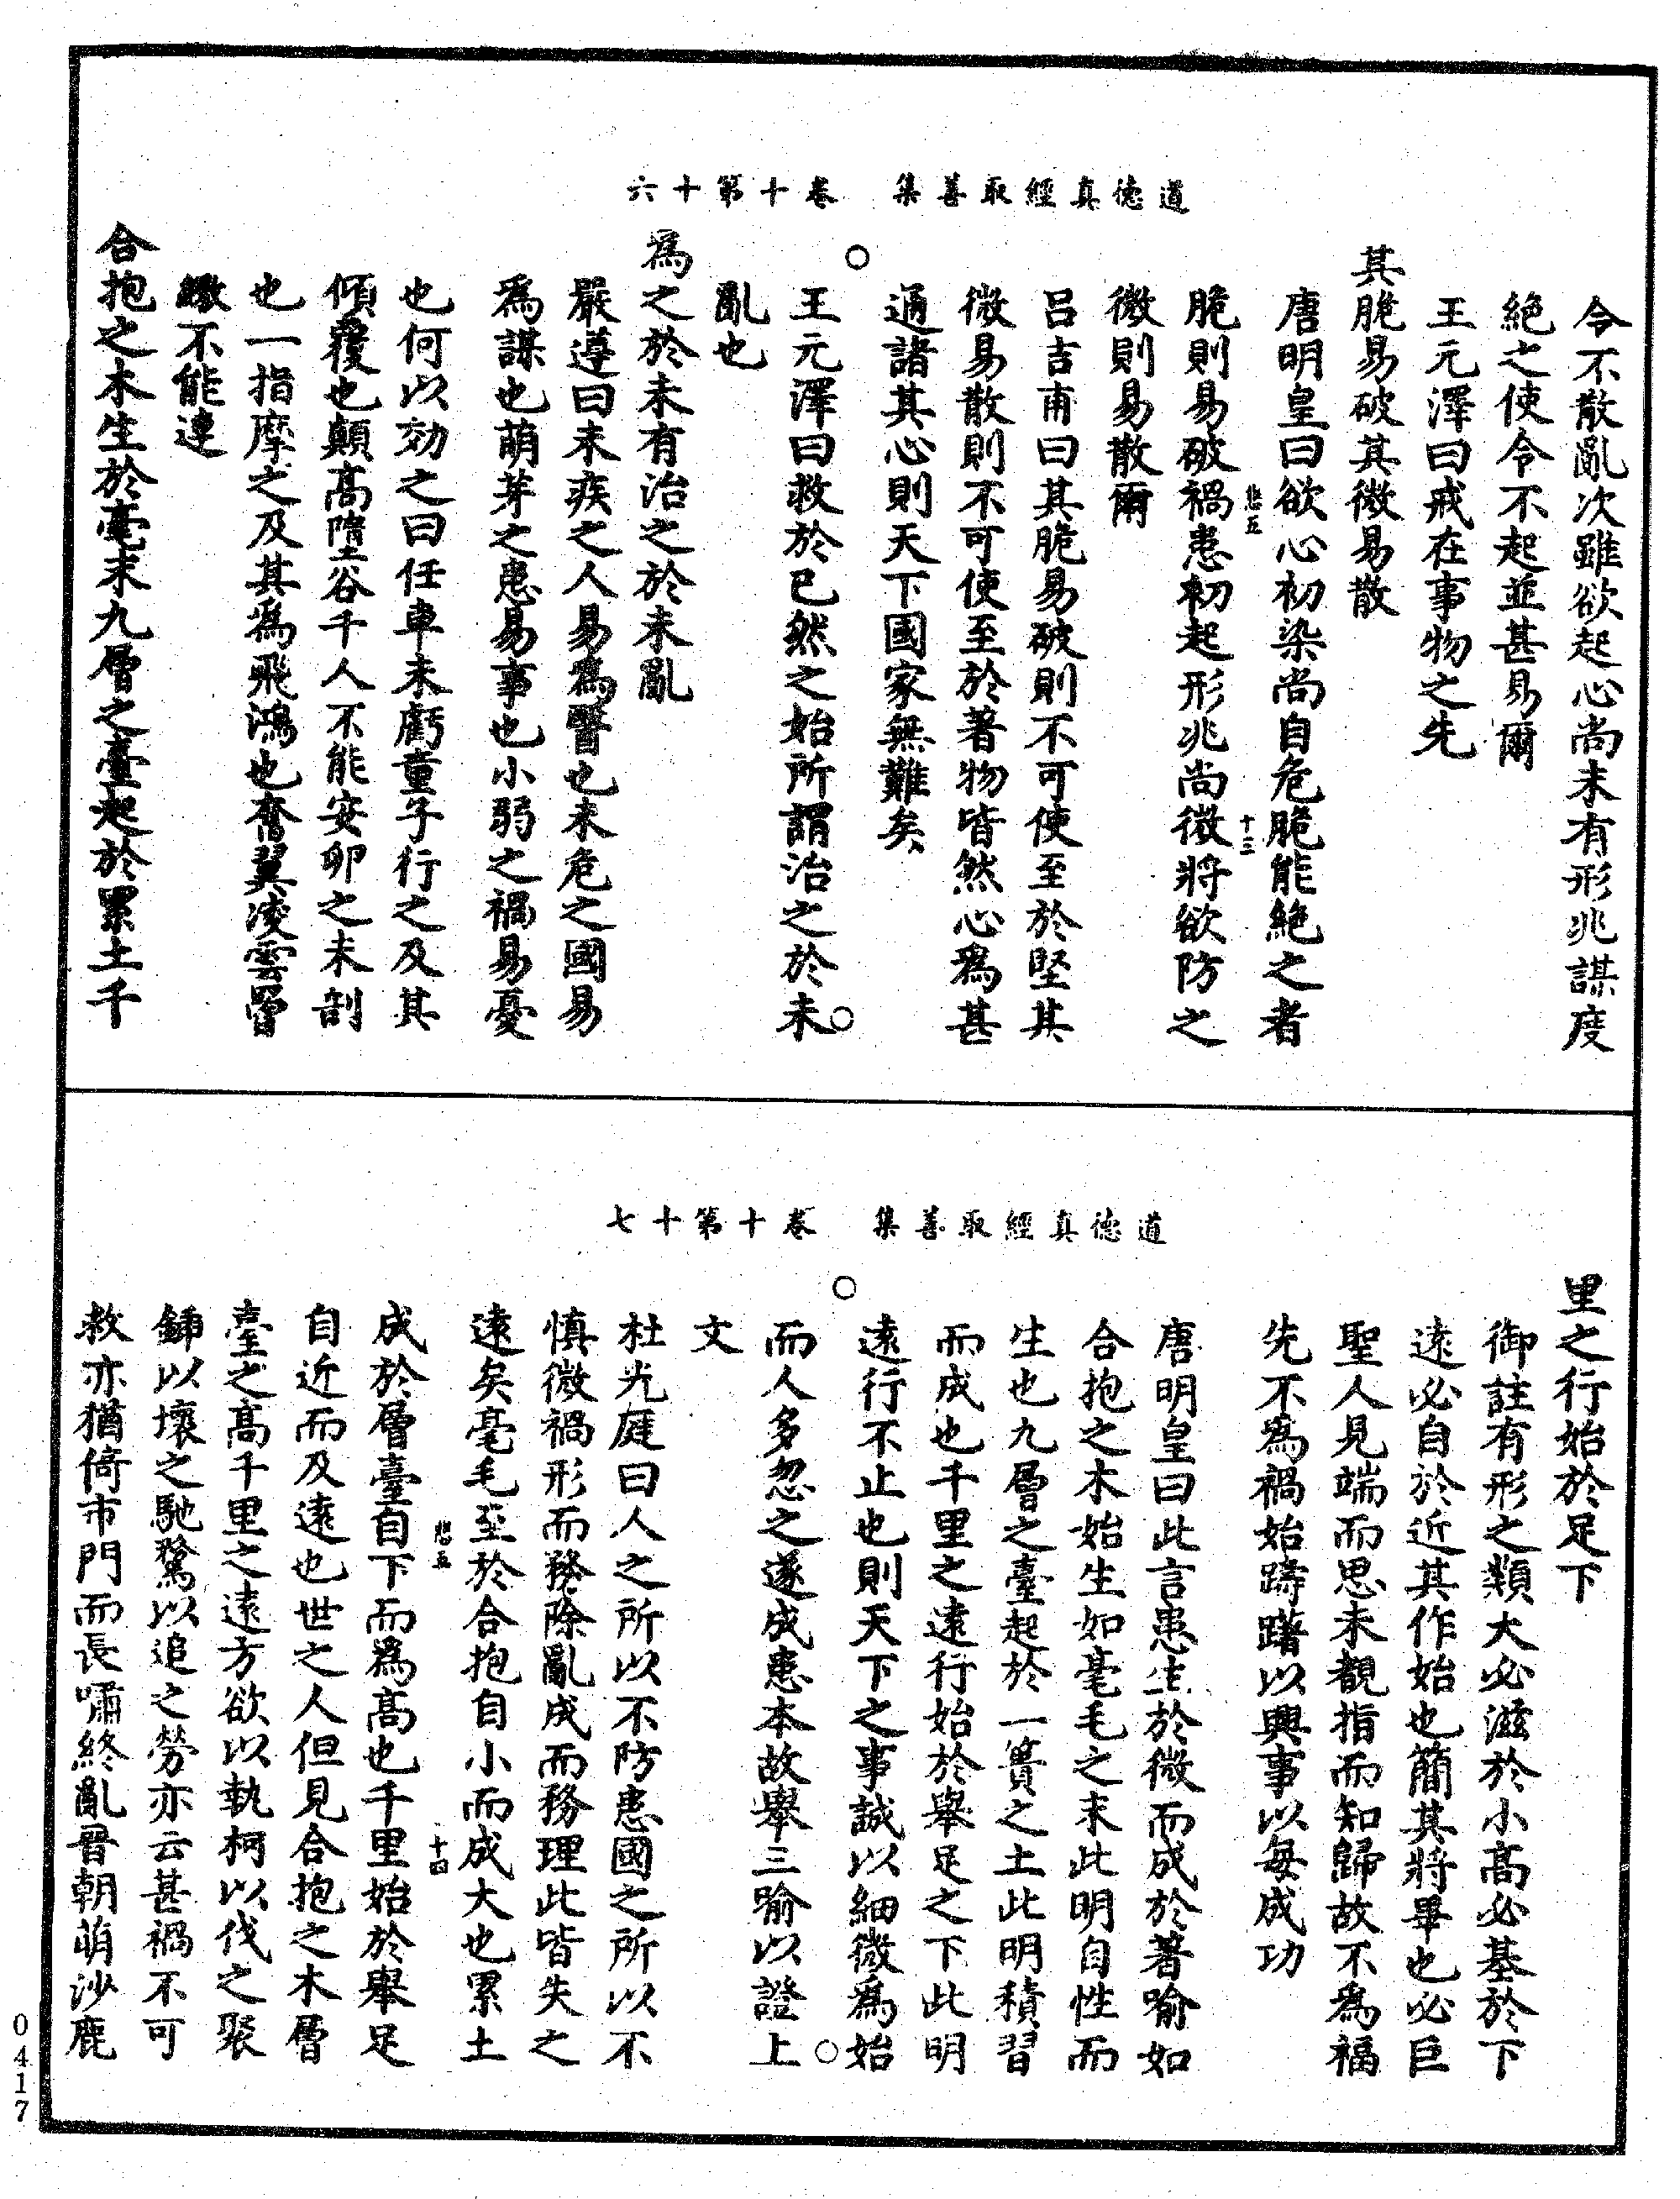 道德真經取善集　卷十第十六
令不散亂次雖欲起心尚未有形兆謀度
絕之使令不起並甚易爾
王元澤曰戒在事物之先
其脆易破其微易散
唐明皇曰欲心初染尚自危脆能絕之者
悲五　十三
脆則易破禍患初起形兆尚微將欲防之
微則易散爾
呂吉甫曰其脆易破則不可使至於堅其
微易散則不可使至於著物皆然心爲甚
通諸其心則天下國家無難矣
王元澤曰救於已然之始所謂治之於未
亂也
爲之於未有治之於未亂
嚴遵曰未疾之人易爲醫也未危之國易
爲謀也萌芽之患易事也小弱之禍易憂
也何以効之曰任車未虧童子行之及其
傾覆也顛高墮谷千人不能安卵之未剖
也一指摩之及其爲飛鴻也奮翼凌雲罾
繳不能逮
合抱之木生於毫末九層之臺起於累土千
道德真經取善集　卷十第十七
里之行始於足下
御註有形之類大必滋於小高必基於下
遠必自於近其作始也簡其將畢也必巨
聖人見端而思末覩指而知歸故不爲福
先不爲禍始躊躇以興事以每成功
唐明皇曰此言患生於微而成於著喻如
合抱之木始生如毫毛之末此明自性而
生也九層之臺起於一簣之土此明積習
而成也千里之遠行始於舉足之下此明
遠行不止也則天下之事誠以細微爲始
而人多忽之遂成患本故舉三喻以證上
文
杜光庭曰人之所以不防患國之所以不
慎微禍形而務除亂成而務理此皆失之
遠矣毫毛至於合抱自小而成大也累土
悲五　十四
成於層臺自下而爲高也千里始於舉足
自近而及遠也世之人但見合抱之木層
臺之高千里之遠方欲以執柯以伐之聚
鍤以壞之馳騖以追之勞亦云甚禍不可
救亦猶倚市門而長嘯終亂晉朝萌沙鹿
0417